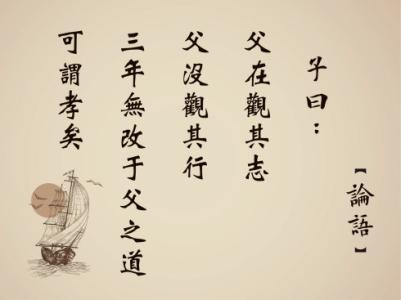 【論語】
子曰：
父在觀其志
父沒觀其行
三年無改于父之道
可謂孝矣